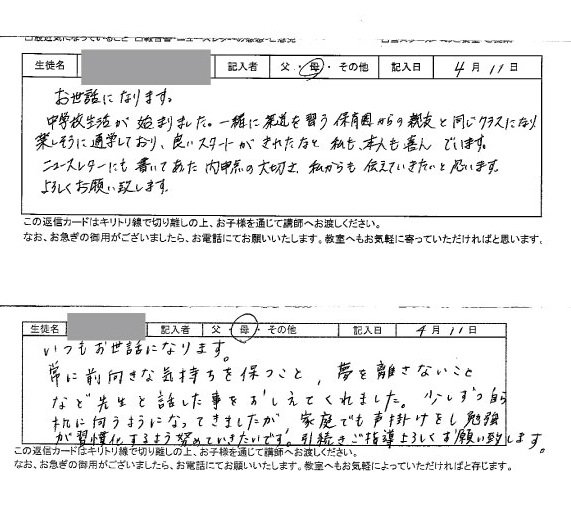 生徒名 記入者 父・母・その他 記入日 4月11日
お世話になります。
中学校生活が始まりました。一緒に柔道を習う保育園からの親友と同じクラスになり
楽しそうに通学しており、良いスタートがきれたなと私も、本人も喜んでいます。
ニュースレターにも書いてあった内申点の大切さ、私からも伝えていきたいと思います。
よろしくお願い致します。
この返信カードはキリトリ線で切り離しの上、お子様を通じて講師へお渡しください。
なお、お急ぎの御用がございましたら、お電話にてお願いいたします。教室へもお気軽に寄っていただければと思います。
生徒名 記入者 父・母・その他 記入日 4月11日
いつもお世話になります。
常に前向きな気持ちを保つこと、夢を離さないこと
など先生と話した事をおしえてくれました。少しずつ自
机に向うようになってきましたが、家庭でも声掛けをし勉強
が習慣化するよう努めていきたいです。引続きご指導よろしくお願い致します。
この返信カードはキリトリ線で切り離しの上、お子様を通じて講師へお渡しください。
なお、お急ぎの御用がございましたら、お電話にてお願いいたします。教室へもお気軽によっていただければと存じます。